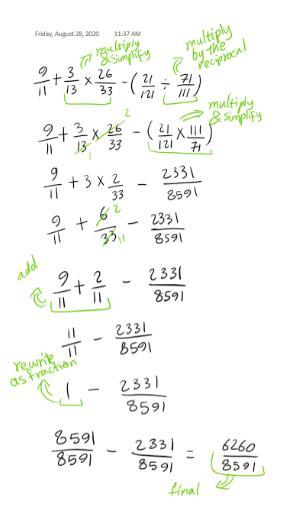 Friday, August 28, 2020 11:37 AM
multiply & simplify
multiply by the reciprocal
9/11 + 3/13 × 26/33 - (21/121 ÷ 71/111)
multiply & simplify
9/11 + 3/13 1 × 26 2/33 - (21/121 × 111/71)
9/11 + 3 × 2/33 - 2331/8591
9/11 + 6 2/33 11 - 2331/8591
add
9/11 + 2/11 - 2331/8591
11/11 - 2331/8591
rewrite as fraction
1 - 2331/8591
8591/8591 - 2331/8591 = 6260/8591
final